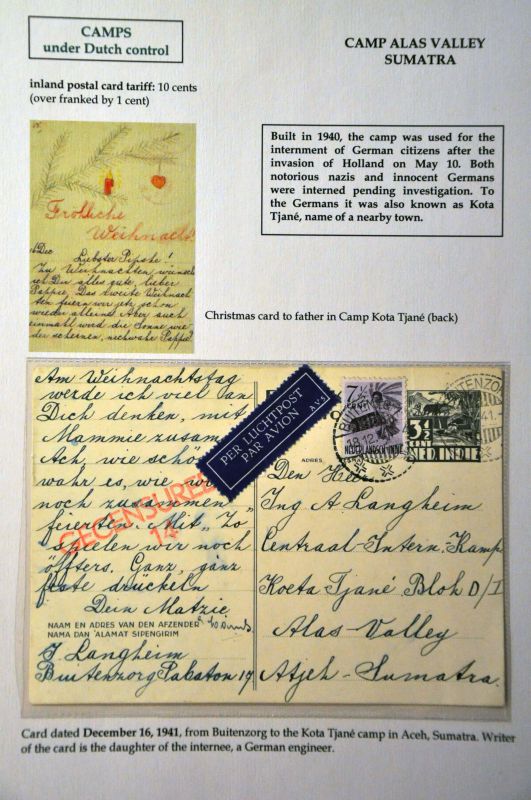 CAMPS
under Dutch control
CAMP ALAS VALLEY
SUMATRA
inland postal card tariff: 10 cents
(over franked by 1 cent)
Built in 1940, the camp was used for the
internment of German citizens after the
invasion of Holland on May 10. Both
notorious nazis and innocent Germans
were interned pending investigation. To
the Germans it was also known as Kota
Tjané, name of a nearby town.
Fröhliche
Weihnacht
16 Dec
Liebster Pipske!
Zu Weihnachten wünsch
ich Dir alles gute, lieber
Pappie. Das zweite Weihnach
ten feiern wir jetz schon
wieder alleine. Aber auch
einmahl wird die Sonne wie
der scheinen, nichwahr Pappie?
Christmas card to father in Camp Kota Tjané (back)
Am Weihnachtstag
werde ich viel an
Dich denken, mit
Mammie zusam
Ach, wie schö
wahr es, wie wir
noch zusammen
feierten. Mit "Zo
spielen wir noch
öfters. Ganz, ganz
feste drückeln
Dein Matzie
GECENSUREE
14
NAAM EN ADRES VAN DEN AFZENDER
NAMA DAN 'ALAMAT SIPENGIRIM
J. Langheim
Buitenzorg Pabaton 17
PER LUCHTPOST
PAR AVION
AVS
7½
NEDERLANDSCH INDIE
BUITENZORG
18.12.
3½
NED. INDIE
BUITENZORG
41
ADRES
Den Heer
Ing A Langheim
Centraal-Intern. Kamp
Koeta Tjané Blok D/I
Alas Valley
Atjeh-Sumatra.
Card dated December 16, 1941, from Buitenzorg to the Kota Tjané camp in Aceh, Sumatra. Writer
of the card is the daughter of the internee, a German engineer.